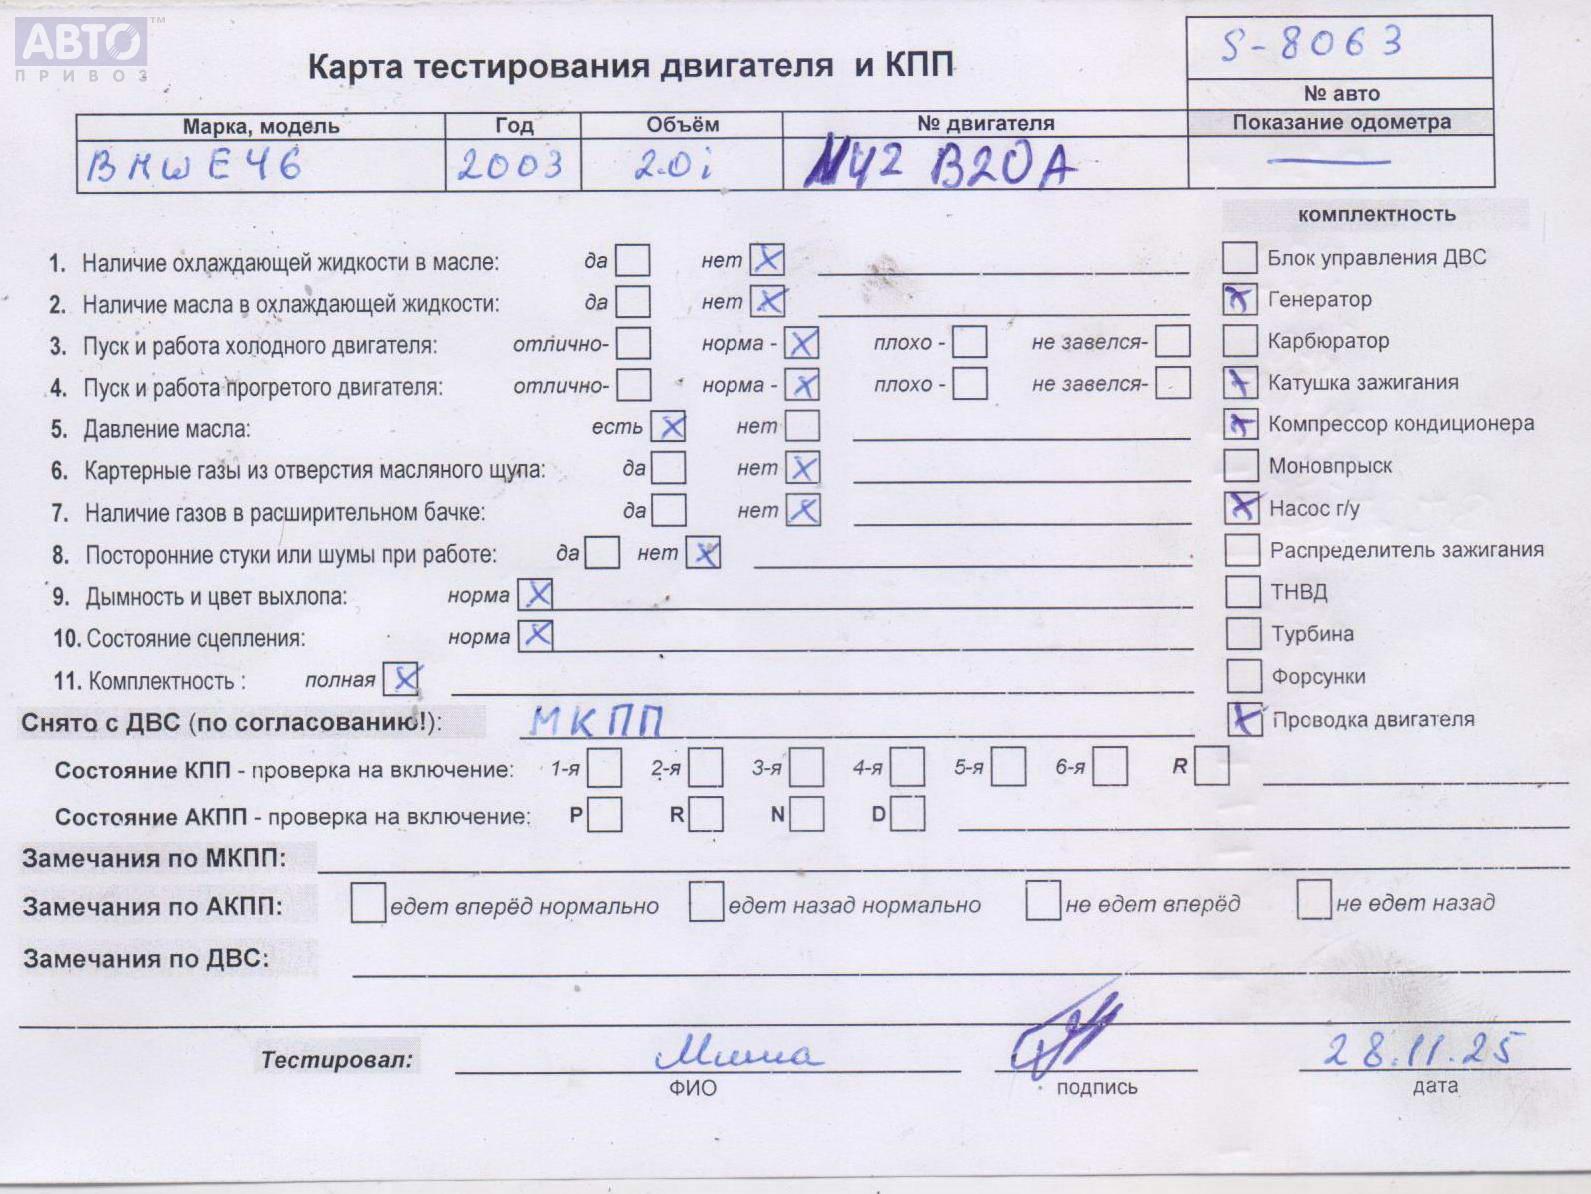 АВТО™
ПРИВОЗ
Карта тестирования двигателя и КПП
S-8063
№ авто
Марка, модель Год Объём № двигателя Показание одометра
BMW E46 2003 2.0i N42 B20A —
комплектность
1. Наличие охлаждающей жидкости в масле: да нет X
Блок управления ДВС
2. Наличие масла в охлаждающей жидкости: да нет X
X Генератор
3. Пуск и работа холодного двигателя: отлично- норма - X плохо - не завелся-
Карбюратор
4. Пуск и работа прогретого двигателя: отлично- норма - X плохо - не завелся-
X Катушка зажигания
5. Давление масла: есть X нет
X Компрессор кондиционера
6. Картерные газы из отверстия масляного щупа: да нет X
Моновпрыск
7. Наличие газов в расширительном бачке: да нет X
X Насос г/у
8. Посторонние стуки или шумы при работе: да нет X
Распределитель зажигания
9. Дымность и цвет выхлопа: норма X
ТНВД
10. Состояние сцепления: норма X
Турбина
11. Комплектность : полная X
Форсунки
Снято с ДВС (по согласованию!): МКПП
X Проводка двигателя
Состояние КПП - проверка на включение: 1-я 2-я 3-я 4-я 5-я 6-я R
Состояние АКПП - проверка на включение: P R N D
Замечания по МКПП:
Замечания по АКПП: едет вперёд нормально едет назад нормально не едет вперёд не едет назад
Замечания по ДВС:
Тестировал: Миша 28.11.25
ФИО подпись дата